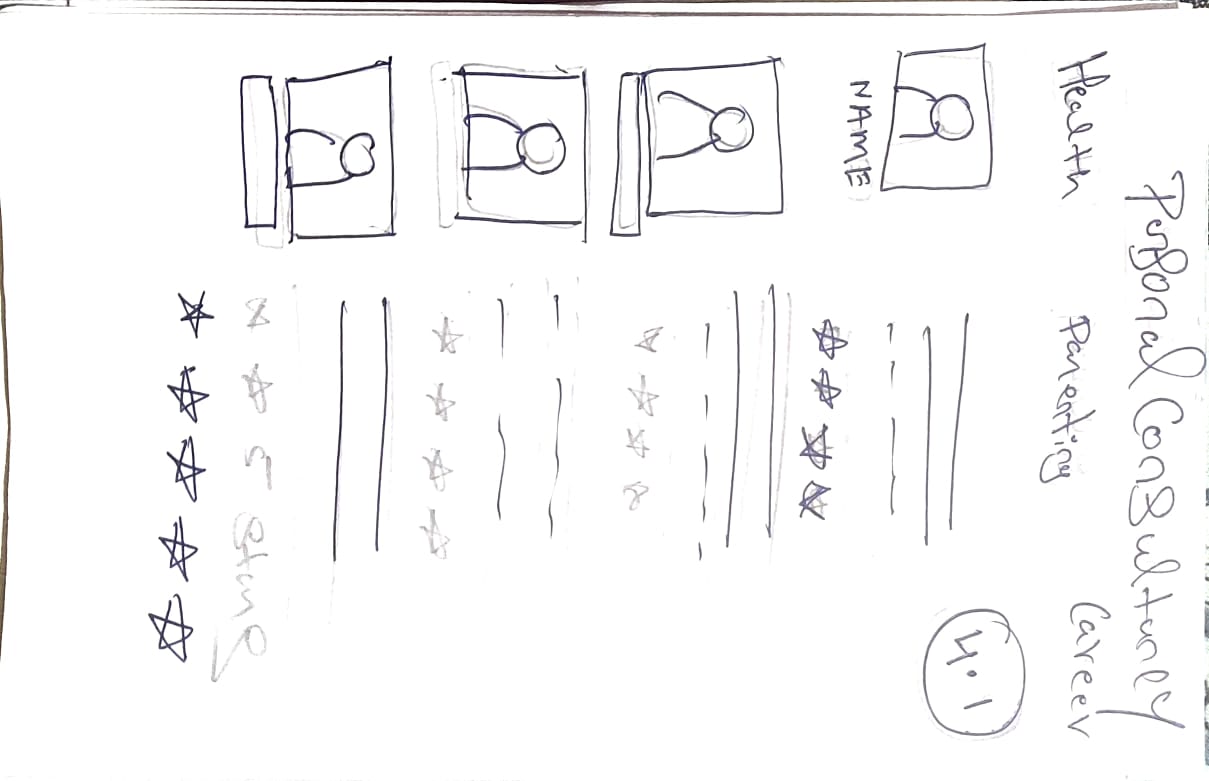 Personal Consultancy
Health Parenting Career
NAME
4.1
5 Star